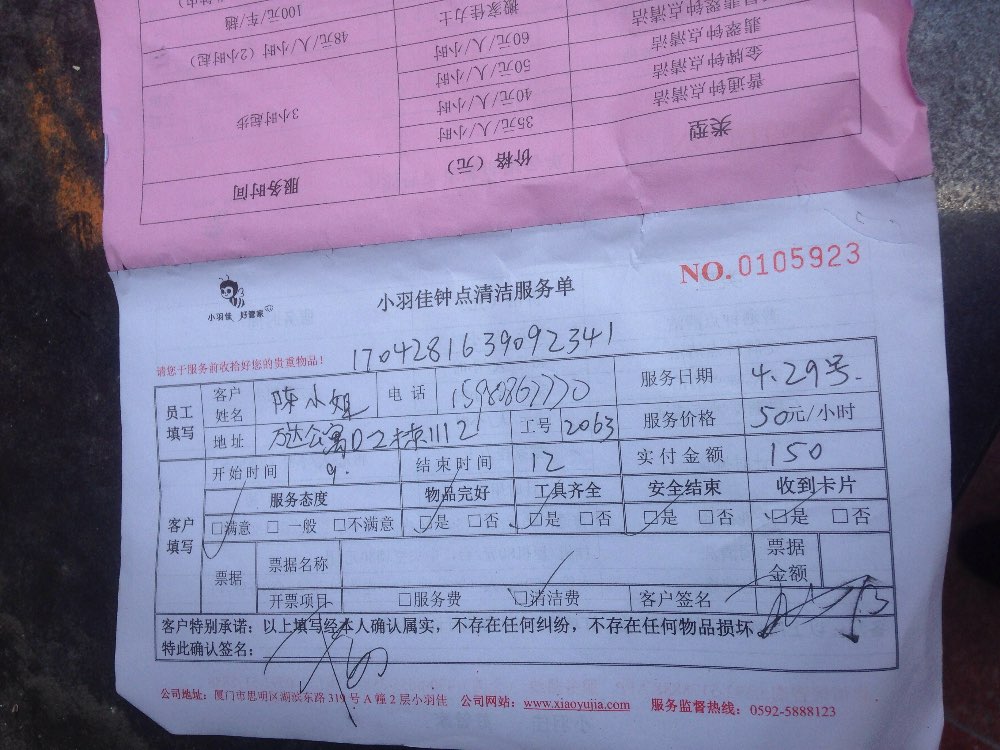 类型 价格（元） 服务时间
普通钟点清洁 35元/人/小时 3小时起步
金牌钟点清洁 40元/人/小时
翡翠钟点清洁 50元/人/小时
翡翠钟点清洁 60元/人/小时 48元/人/小时（2小时起）
搬家佳力士 100元/车/趟
小羽佳 好管家
小羽佳钟点清洁服务单
NO.0105923
请您于服务前收拾好您的贵重物品！
1704281639092341
员工填写 客户姓名 陈小姐 电话 服务日期 4.29号.
地址 万达公寓D2栋1112 工号 2063 服务价格 50元/小时
客户填写 开始时间 9. 结束时间 12 实付金额 150
服务态度 物品完好 工具齐全 安全结束 收到卡片
□满意 □一般 □不满意 □是 □否 □是 □否 □是 □否 □是 □否
票据 票据名称 票据金额
开票项目 □服务费 □清洁费 客户签名
客户特别承诺：以上填写经本人确认属实，不存在任何纠纷，不存在任何物品损坏。
特此确认签名：
公司地址：厦门市思明区湖滨东路319号A幢2层小羽佳 公司网站：www.xiaoyujia.com 服务监督热线：0592-5888123